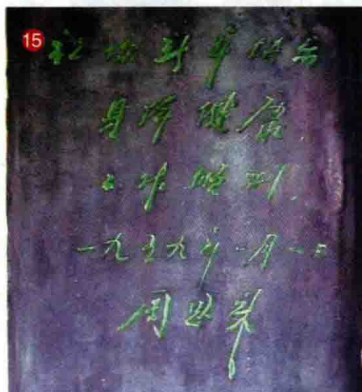 15
祝你新年快乐
身体健康
工作胜利
一九五九年一月一日
周恩来